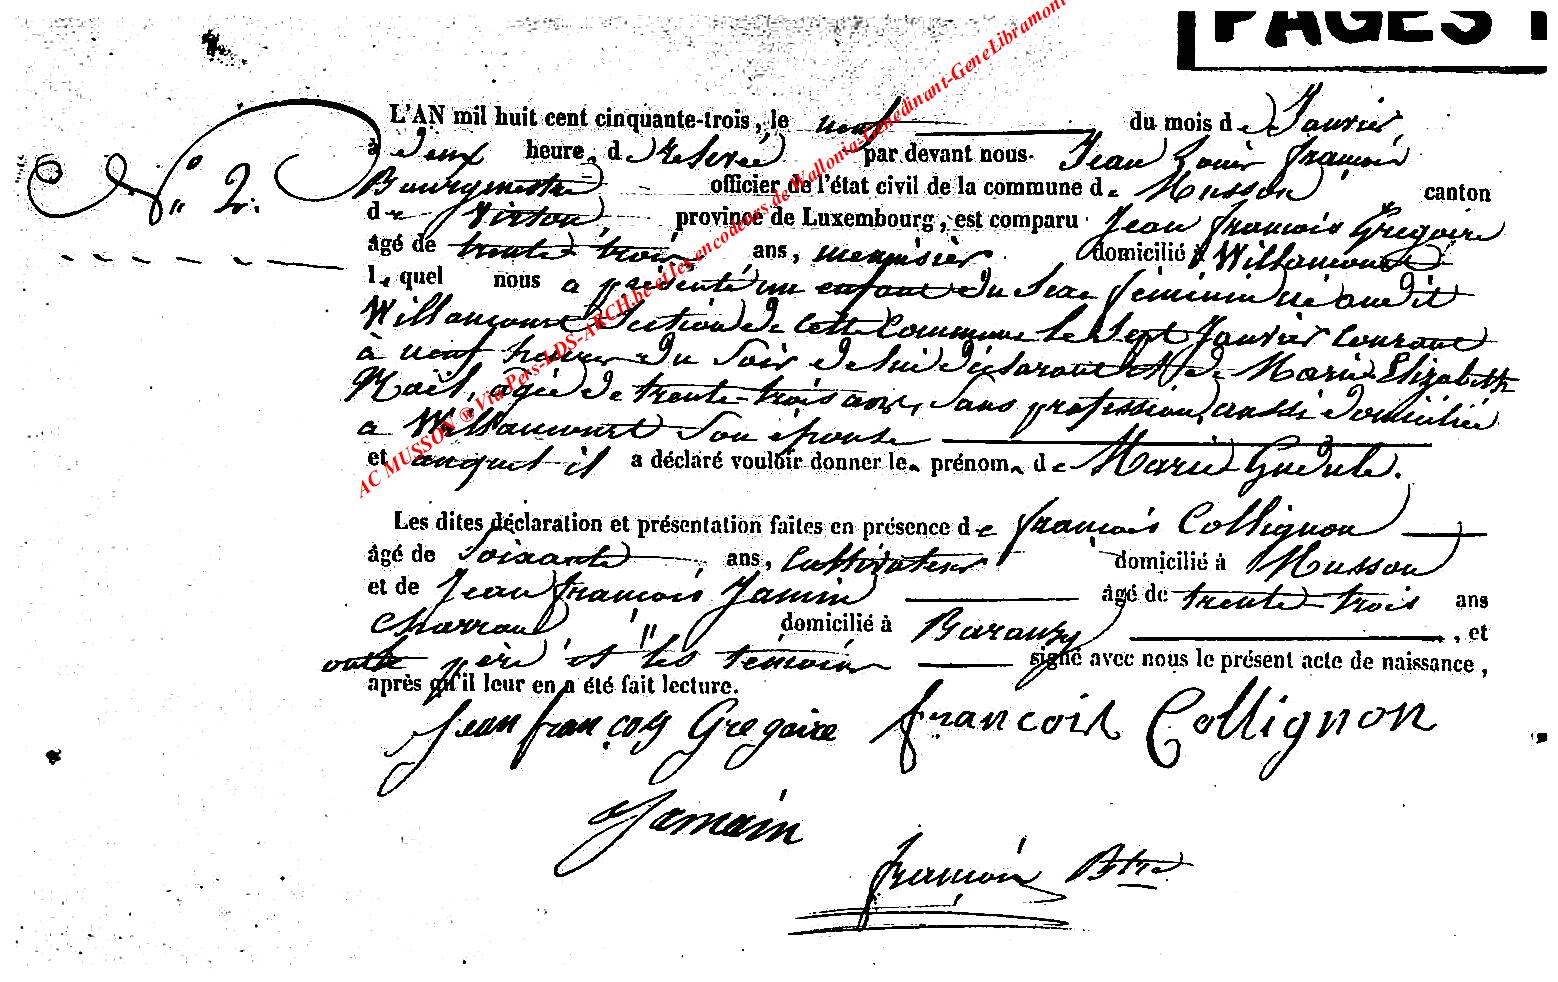 PAGES
AC MUSSON ® Via Pers-LDS-ARCH.be et les encodeurs de Wallonia-Genedinant-GeneLibramont
N° 2.
L'AN mil huit cent cinquante-trois, le neuf du mois de Janvier,
à deux heures de relevée par devant nous Jean Louis François
Bourgmestre officier de l'état civil de la commune de Musson canton
de Virton, province de Luxembourg, est comparu Jean François Grégoire
âgé de trente trois ans, menuisier domicilié à Willancourt
lequel nous a présenté un enfant du sexe féminin né audit
Willancourt Section de cette Commune le Sept Janvier Courant
à neuf heures du soir de lui déclarant et de Marie Elizabeth
Noël, agée de trente trois ans, sans profession, aussi domiciliée
a Willancourt son épouse
et auquel il a déclaré vouloir donner les prénoms de Marie Gudule.
Les dites déclaration et présentation faites en présence de François Collignon
âgé de Soixante ans, Cultivateur domicilié à Musson
et de Jean François Jamin âgé de trente-trois ans
Charron domicilié à Baranzy , et
père et les témoins signé avec nous le présent acte de naissance,
après qu'il leur en a été fait lecture.
Jean françois Gregoire francois Collignon
Jamain
françois Btre